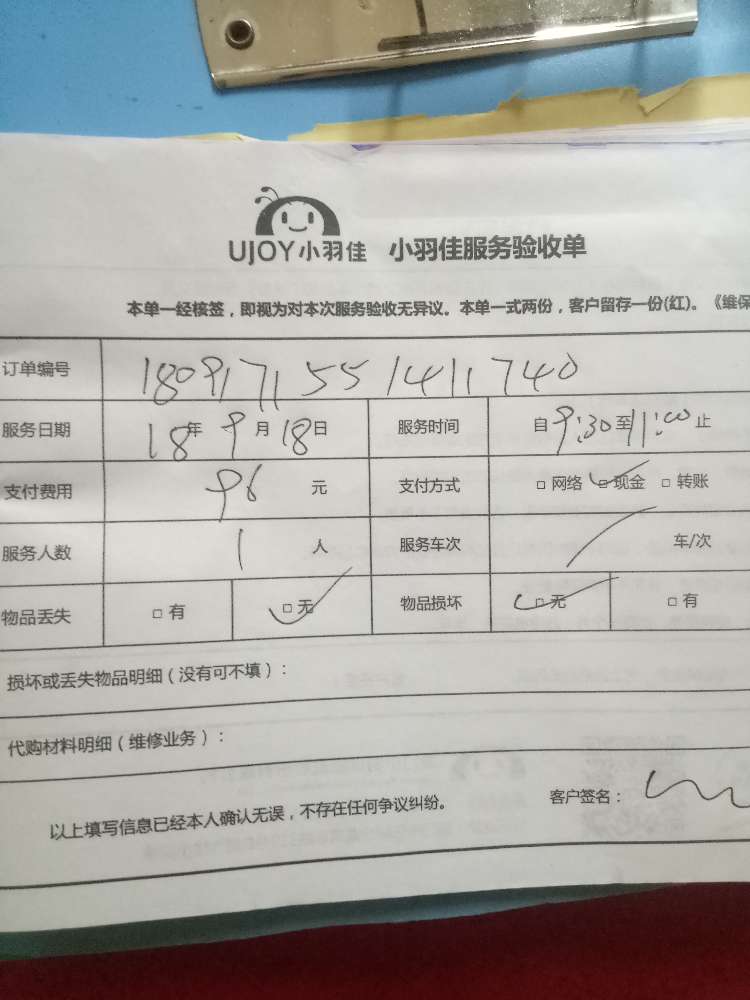 UJOY小羽佳 小羽佳服务验收单
本单一经核签，即视为对本次服务验收无异议。本单一式两份，客户留存一份(红)。《维保
订单编号 1809171551411740
服务日期 18年9月18日 服务时间 自9:30至11:00止
支付费用 96元 支付方式 □ 网络 □ 现金 □ 转账
服务人数 1人 服务车次 / 车/次
物品丢失 □ 有 □ 无 物品损坏 □ 无 □ 有
损坏或丢失物品明细（没有可不填）：
代购材料明细（维修业务）：
以上填写信息已经本人确认无误，不存在任何争议纠纷。 客户签名：